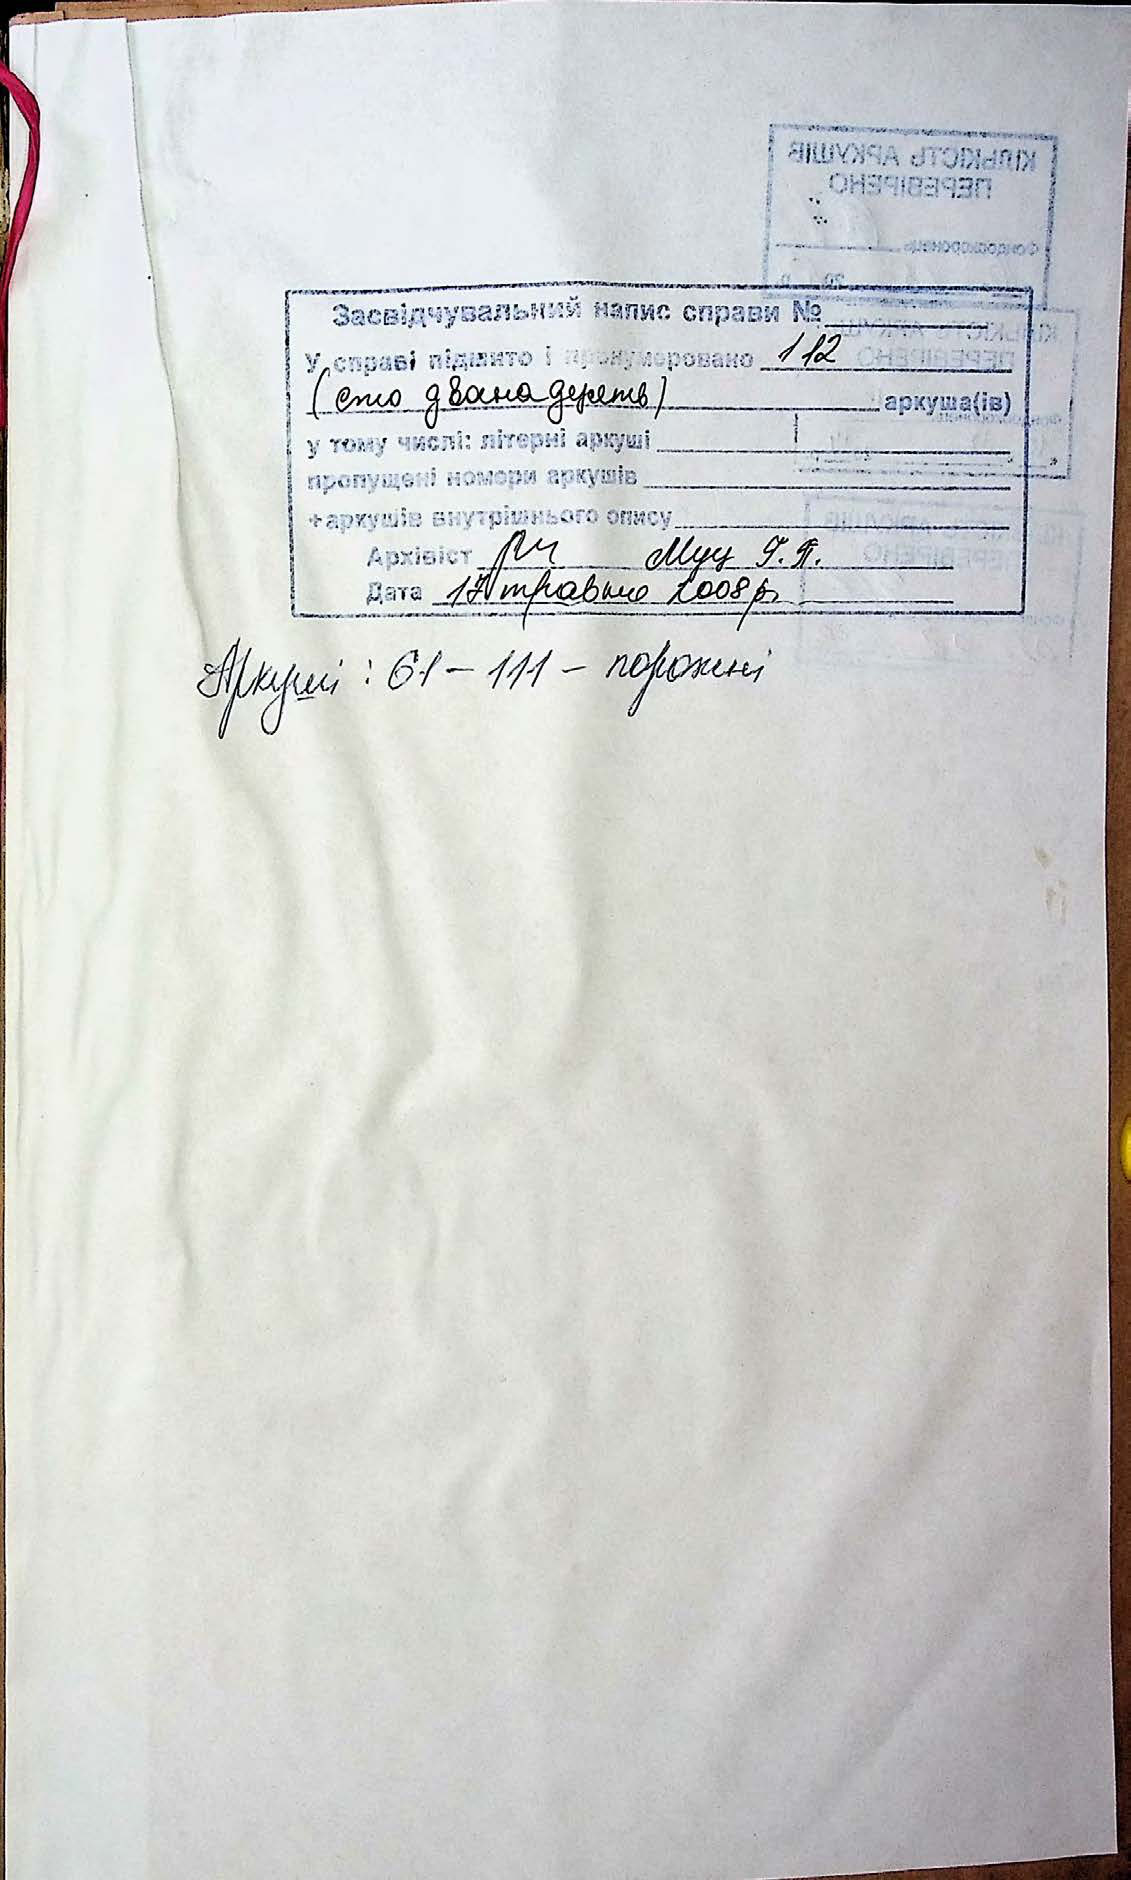 КІЛЬКІСТЬ АРКУШІВ
ПЕРЕВІРЕНО
Фондоохоронець
20 р.
Засвідчувальний напис справи №
У справі підшито і пронумеровано 112
(сто дванадцять) аркуша(ів)
у тому числі: літерні аркуші
пропущені номери аркушів
+аркушів внутрішнього опису
Архівіст Муц Г.П.
Дата 17 травня 2008р.
Аркуші : 61 – 111 – порожні